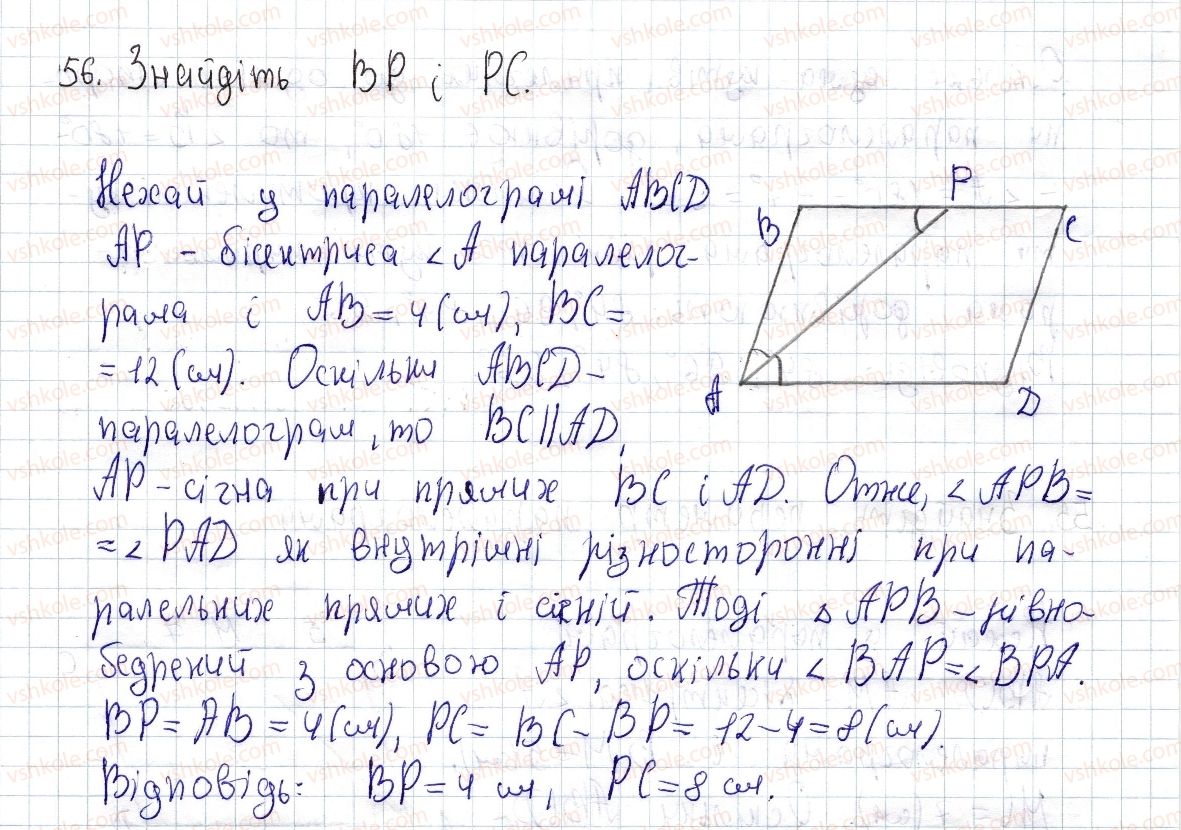 56. Знайдіть BP і PC.
Нехай у паралелограмі ABCD
AP - бісектриса ∠A паралелог-
рама і AB = 4 (см), BC =
= 12 (см). Оскільки ABCD -
паралелограм, то BC || AD,
AP - січна при прямих BC і AD. Отже, ∠APB =
= ∠PAD як внутрішні різносторонні при па-
ралельних прямих і січній. Тоді △APB - рівно-
бедрений з основою AP, оскільки ∠BAP = ∠BPA.
BP = AB = 4 (см), PC = BC - BP = 12 - 4 = 8 (см).
Відповідь: BP = 4 см, PC = 8 см.
P
B
C
A
D
vshkole.com